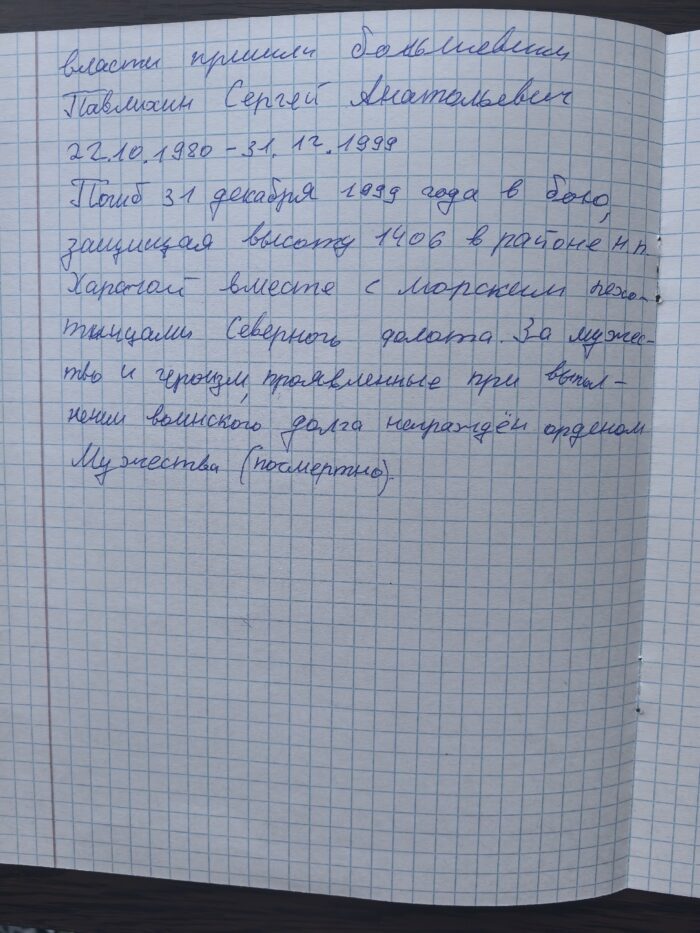 власти пришли большевики
Павлихин Сергей Анатольевич
22.10.1980 - 31.12.1999
Погиб 31 декабря 1999 года в бою,
защищая высоту 1406 в районе н.п.
Харачой вместе с морским пехо-
тинцами Северного долота. За мужес-
тво и героизм, проявленные при выпол-
нении воинского долга награждён орденом
Мужества (посмертно).